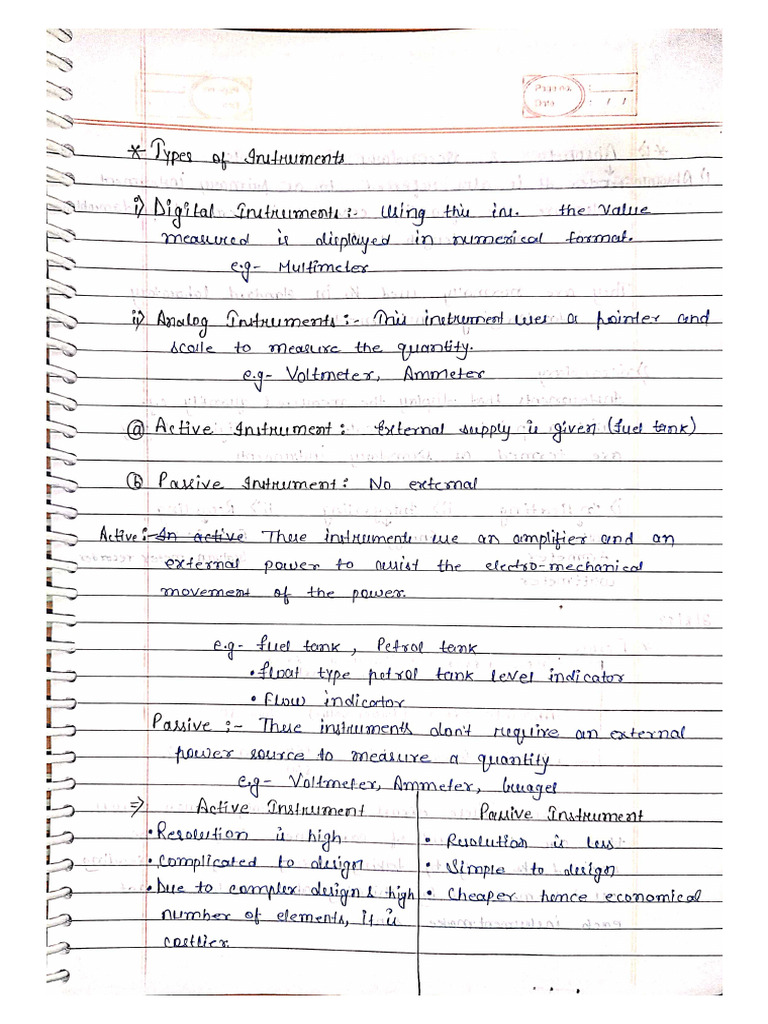 Page No. :
Date : / /
* Types of Instruments
i) Digital Instruments :- Using this ins. the value
measured is displayed in numerical format.
e.g- Multimeter
ii) Analog Instruments :- This instrument uses a pointer and
scale to measure the quantity.
e.g- Voltmeter, Ammeter
(a) Active Instrument : External supply is given (fuel tank)
(b) Passive Instrument : No external
Active :- In active These instruments use an amplifier and an
external power to assist the electro-mechanical
movement of the power.
e.g- fuel tank , Petrol tank
• float type petrol tank level indicator
• Flow indicator
Passive :- These instruments don't require an external
power source to measure a quantity
e.g- Voltmeter, Ammeter,
⇒ Active Instrument Passive Instrument
• Resolution is high • Resolution is less
• Complicated to design • Simple to design
• Due to complex design & high • Cheaper hence economical
number of elements, it is
costlier.